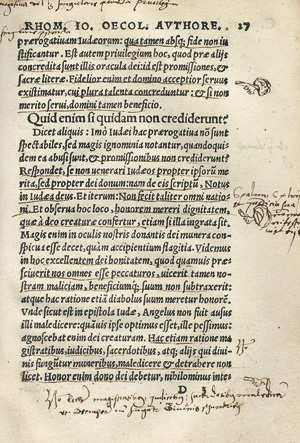 RHOM. IO. OECOL. AVTHORE. 27
prærogatiuam Iudæorum: qua tamen absq; fide non iu
stificantur. Est autem priuilegium hoc, quod præ alijs
concredita sunt illis oracula dei: id est promissiones, &
sacræ literæ. Fidelior enim et domino acceptior seruus
existimatur, cui plura talenta concreduntur: & si non
merito serui, domini tamen beneficio.
Quid enim si quidam non crediderunt?
Dicet aliquis: Imò Iudæi hac prærogatiua nõ sunt
spectabiles, sed magis ignominia notantur, quandoqui
dem ea abusi sunt, & promissionibus non crediderunt?
Respondet, se non uenerari Iudæos propter ipsorũ me
rita, sed propter dei donum: nam de eis scriptũ, Notus
in Iudæa deus. Et iterum: Non fecit taliter omni nati
oni. Et obserua hoc loco, honorem mereri dignitatem,
quæ à deo creaturæ confertur, etiam si illa ingrata sit.
Magis enim in oculis nostris donantis dei munera con
spicua esse decet, quàm accipientium flagitia. Videmus
in hoc excellentem dei bonitatem, quod quamuis præ
sciuerit nos omnes esse peccatores, uicerit tamen no
stram maliciam, beneficiumq; suum non subtraxerit:
atque hac ratione etiã diabolus suum meretur honorẽ.
Vnde sicut est in epistola Iudæ, Angelus non fuit ausus
illi maledicere: quàuis ipse optimus esset, ille pessimus:
agnoscebat enim dei creaturam. Hac etiam ratione ma
gistratibus, iudicibus, sacerdotibus, atq; alijs qui diui
nis fungütur muneribus, maledicere & detrahere non
licet. Honor enim dono dei debetur, nihilominus inte
D 3